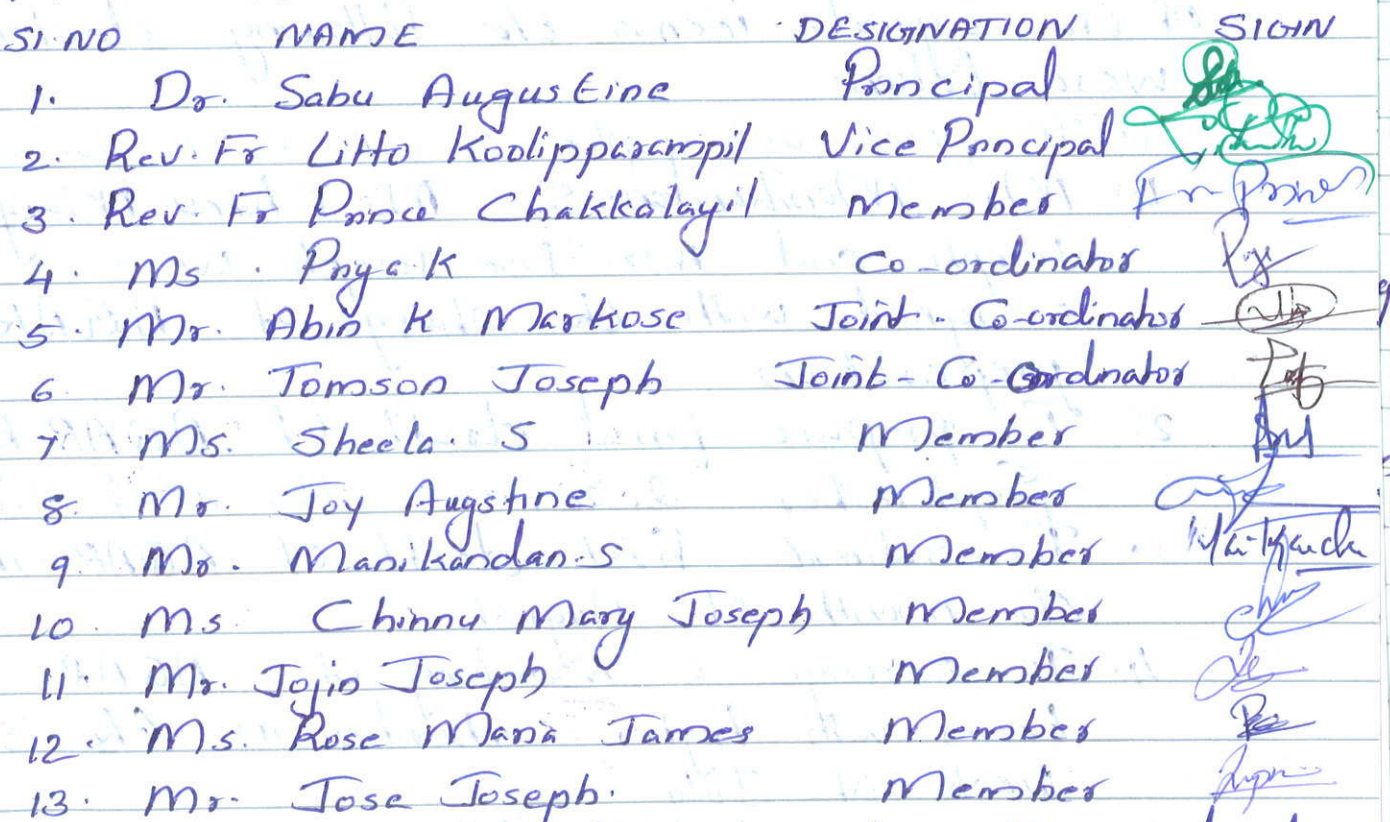 SI.NO NAME DESIGNATION SIGIN
1. Dr. Sabu Augustine Principal
2. Rev. Fr Litto Koolipparampil Vice Principal
3. Rev. Fr Prince Chakkalayil Member Fr Prince
4. Ms. Priya K Co-ordinator
5. Mr. Abin K Markose Joint-Co-ordinator
6 Mr. Tomson Joseph Joint-Co-ordinator
7. Ms. Sheela. S Member
8. Mr. Joy Augstine Member
9 Mr. Manikandan.S Member
10. Ms. Chinnu Mary Joseph Member
11. Mr. Jojin Joseph Member
12. Ms. Rose Maria James Member
13. Mr. Jose Joseph. Member